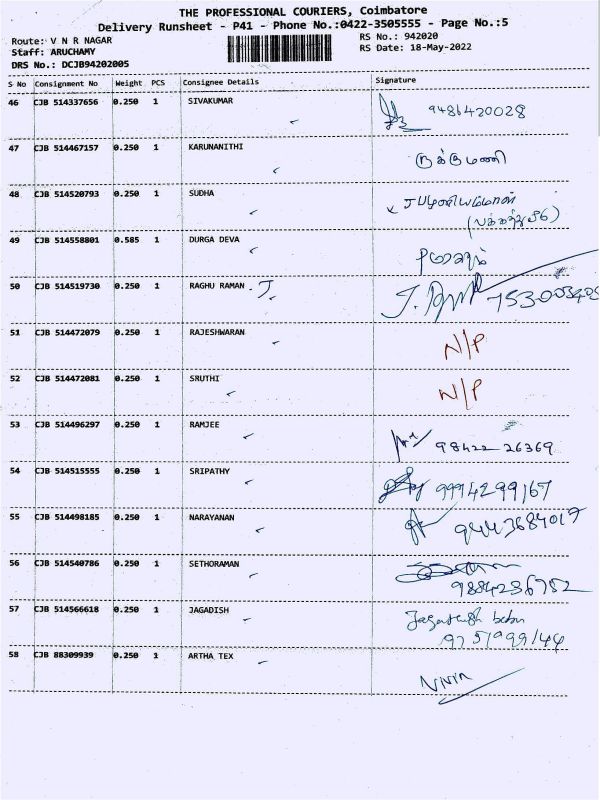 THE PROFESSIONAL COURIERS, Coimbatore
Delivery Runsheet - P41 - Phone No.:0422-3505555 - Page No.:5
Route: V N R NAGAR RS No.: 942020
Staff: ARUCHAMY RS Date: 18-May-2022
DRS No.: DCJB94202005
S No Consignment No Weight PCS Consignee Details Signature
46 CJB 514337656 0.250 1 SIVAKUMAR 9486420028
47 CJB 514467157 0.250 1 KARUNANITHI ருக்குமணி
48 CJB 514520793 0.250 1 SUDHA
(பக்கத்து வீடு)
49 CJB 514558801 0.585 1 DURGA DEVA
50 CJB 514519730 0.250 1 RAGHU RAMAN . J.
51 CJB 514472079 0.250 1 RAJESHWARAN N/P
52 CJB 514472081 0.250 1 SRUTHI N/P
53 CJB 514496297 0.250 1 RAMJEE 98422 26369
54 CJB 514515555 0.250 1 SRIPATHY 9994299167
55 CJB 514498185 0.250 1 NARAYANAN 9443684017
56 CJB 514540786 0.250 1 SETHORAMAN
9884236752
57 CJB 514566618 0.250 1 JAGADISH
9751999144
58 CJB 88309939 0.250 1 ARTHA TEX